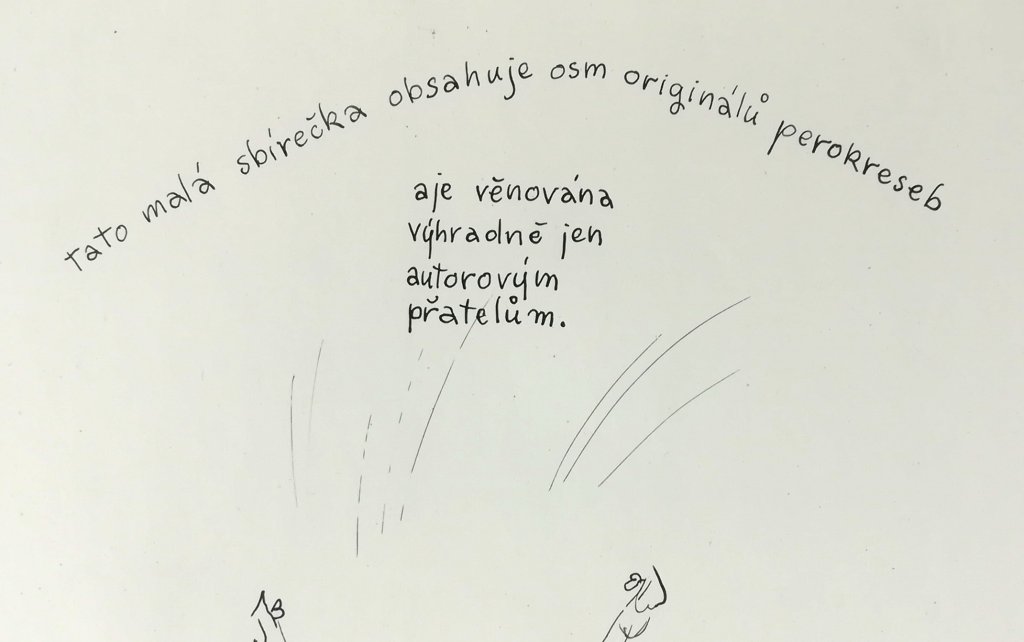 tato malá sbírečka obsahuje osm originálů perokreseb
aje věnována
výhradně jen
autorovým
přatelům.